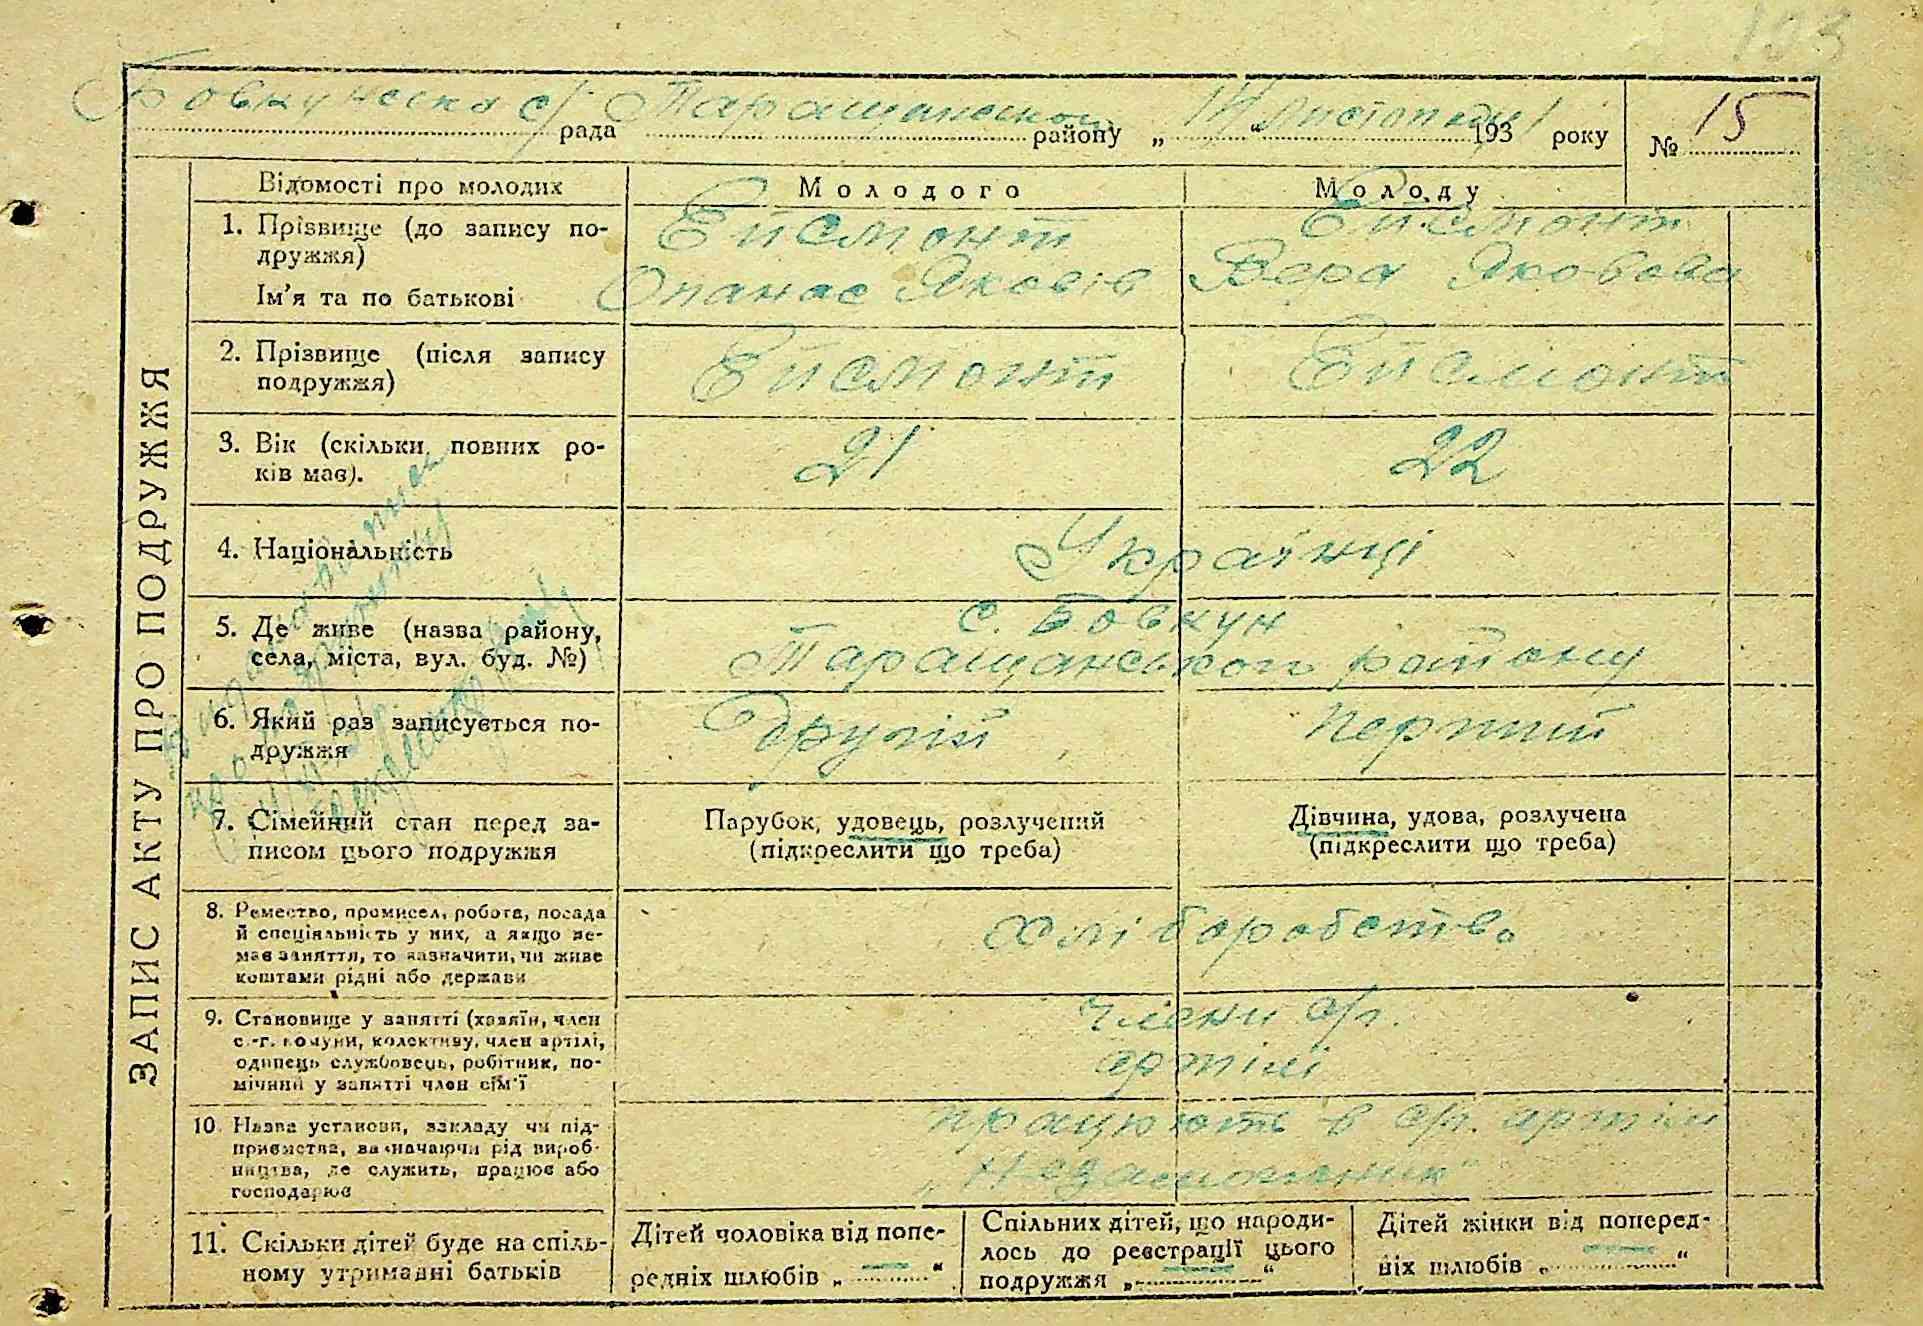 193
Бовкунська с/ рада Таращанського району „ 14 " листопада 1931 року № 15
ЗАПИС АКТУ ПРО ПОДРУЖЖЯ
Відомості про молодих Молодого Молоду
1. Прізвище (до запису по-
дружжя)
Ейсмонт Ейсмонт
Ім'я та по батькові Опанас Яковів Вера Яковова
2. Прізвище (після запису
подружжя)
Ейсмонт Ейсмонт
3. Вік (скільки повних ро-
ків має).
21 22
4. Національність Українці
5. Де живе (назва району,
села, міста, вул. буд. №)
с. Бовкун
Таращанського району
6. Який раз записується по-
дружжя
Другій перший
7. Сімейний стан перед за-
писом цього подружжя
Парубок, удовець, розлучений
(підкреслити що треба)
Дівчина, удова, розлучена
(підкреслити що треба)
8. Ремество, промисел, робота, посада
й спеціяльність у них, а якщо не-
має заняття, то зазначити, чи живе
коштами рідні або держави
Хліборобство
9. Становище у занятті (хазяїн, член
с.-г. комуни, колективу, член артілі,
одинець службовець, робітник, по-
мічний у занятті член сім'ї
Члени с/г.
артілі
10. Назва установи, закладу чи під-
приємства, зазначаючи рід вироб-
ництва, де служить, працює або
господарює
працюють в с/г. артілі
„Незаможник"
11. Скільки дітей буде на спіль-
ному утриманні батьків
Дітей чоловіка від попе-
редніх шлюбів „ — "
Спільних дітей, що народи-
лось до реєстрації цього
подружжя „ — "
Дітей жінки від поперед-
ніх шлюбів „ — "